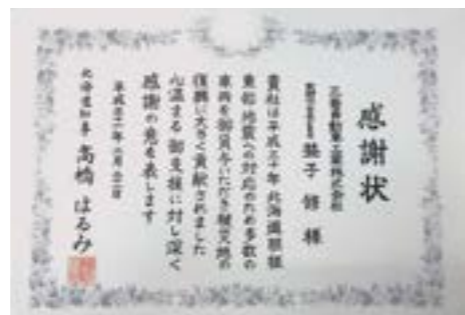 感謝状
三菱自動車工業株式会社
益子 修 様
貴社は平成三十年北海道胆振
東部地震への対応のため多数の
車両を御貸与いただき被災地の
復興に大きく貢献されました
心温まる御支援に対し深く
感謝の意を表します
北海道知事 高橋 はるみ